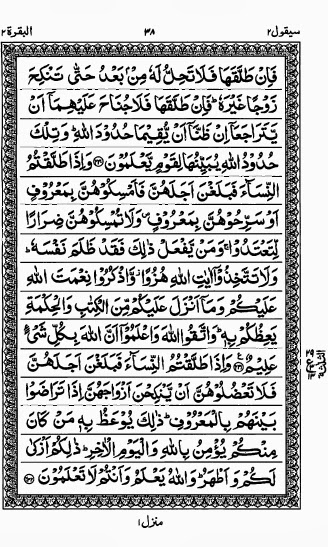 سیقول۲ ۳۸ البقرة۲
فَاِنْ طَلَّقَهَا فَلَا تَحِلُّ لَهٗ مِنْۢ بَعْدُ حَتّٰى تَنْكِحَ
زَوْجًا غَيْرَهٗ ؕ فَاِنْ طَلَّقَهَا فَلَا جُنَاحَ عَلَيْهِمَاۤ اَنْ
يَّتَرَاجَعَاۤ اِنْ ظَنَّاۤ اَنْ يُّقِيْمَا حُدُوْدَ اللّٰهِ ؕ وَتِلْكَ
حُدُوْدُ اللّٰهِ يُبَيِّنُهَا لِقَوْمٍ يَّعْلَمُوْنَ ﴿۲۳۰﴾ وَاِذَا طَلَّقْتُمُ
النِّسَآءَ فَبَلَغْنَ اَجَلَهُنَّ فَاَمْسِكُوْهُنَّ بِمَعْرُوْفٍ
اَوْ سَرِّحُوْهُنَّ بِمَعْرُوْفٍ ۪ وَلَا تُمْسِكُوْهُنَّ ضِرَارًا
لِّتَعْتَدُوْا ۚ وَمَنْ يَّفْعَلْ ذٰلِكَ فَقَدْ ظَلَمَ نَفْسَهٗ ؕ
وَلَا تَتَّخِذُوْۤا اٰيٰتِ اللّٰهِ هُزُوًا ؗ وَّاذْكُرُوْا نِعْمَتَ اللّٰهِ
عَلَيْكُمْ وَمَاۤ اَنْزَلَ عَلَيْكُمْ مِّنَ الْكِتٰبِ وَالْحِكْمَةِ
يَعِظُكُمْ بِهٖ ؕ وَاتَّقُوا اللّٰهَ وَاعْلَمُوْۤا اَنَّ اللّٰهَ بِكُلِّ شَىْءٍ
عَلِيْمٌ ﴿۲۳۱﴾ وَاِذَا طَلَّقْتُمُ النِّسَآءَ فَبَلَغْنَ اَجَلَهُنَّ
فَلَا تَعْضُلُوْهُنَّ اَنْ يَّنْكِحْنَ اَزْوَاجَهُنَّ اِذَا تَرَاضَوْا
بَيْنَهُمْ بِالْمَعْرُوْفِ ؕ ذٰلِكَ يُوْعَظُ بِهٖ مَنْ كَانَ
مِنْكُمْ يُؤْمِنُ بِاللّٰهِ وَالْيَوْمِ الْاٰخِرِ ؕ ذٰلِكُمْ اَزْكٰى
لَكُمْ وَاَطْهَرُ ؕ وَاللّٰهُ يَعْلَمُ وَاَنْتُمْ لَا تَعْلَمُوْنَ ﴿۲۳۲﴾
منزل۱